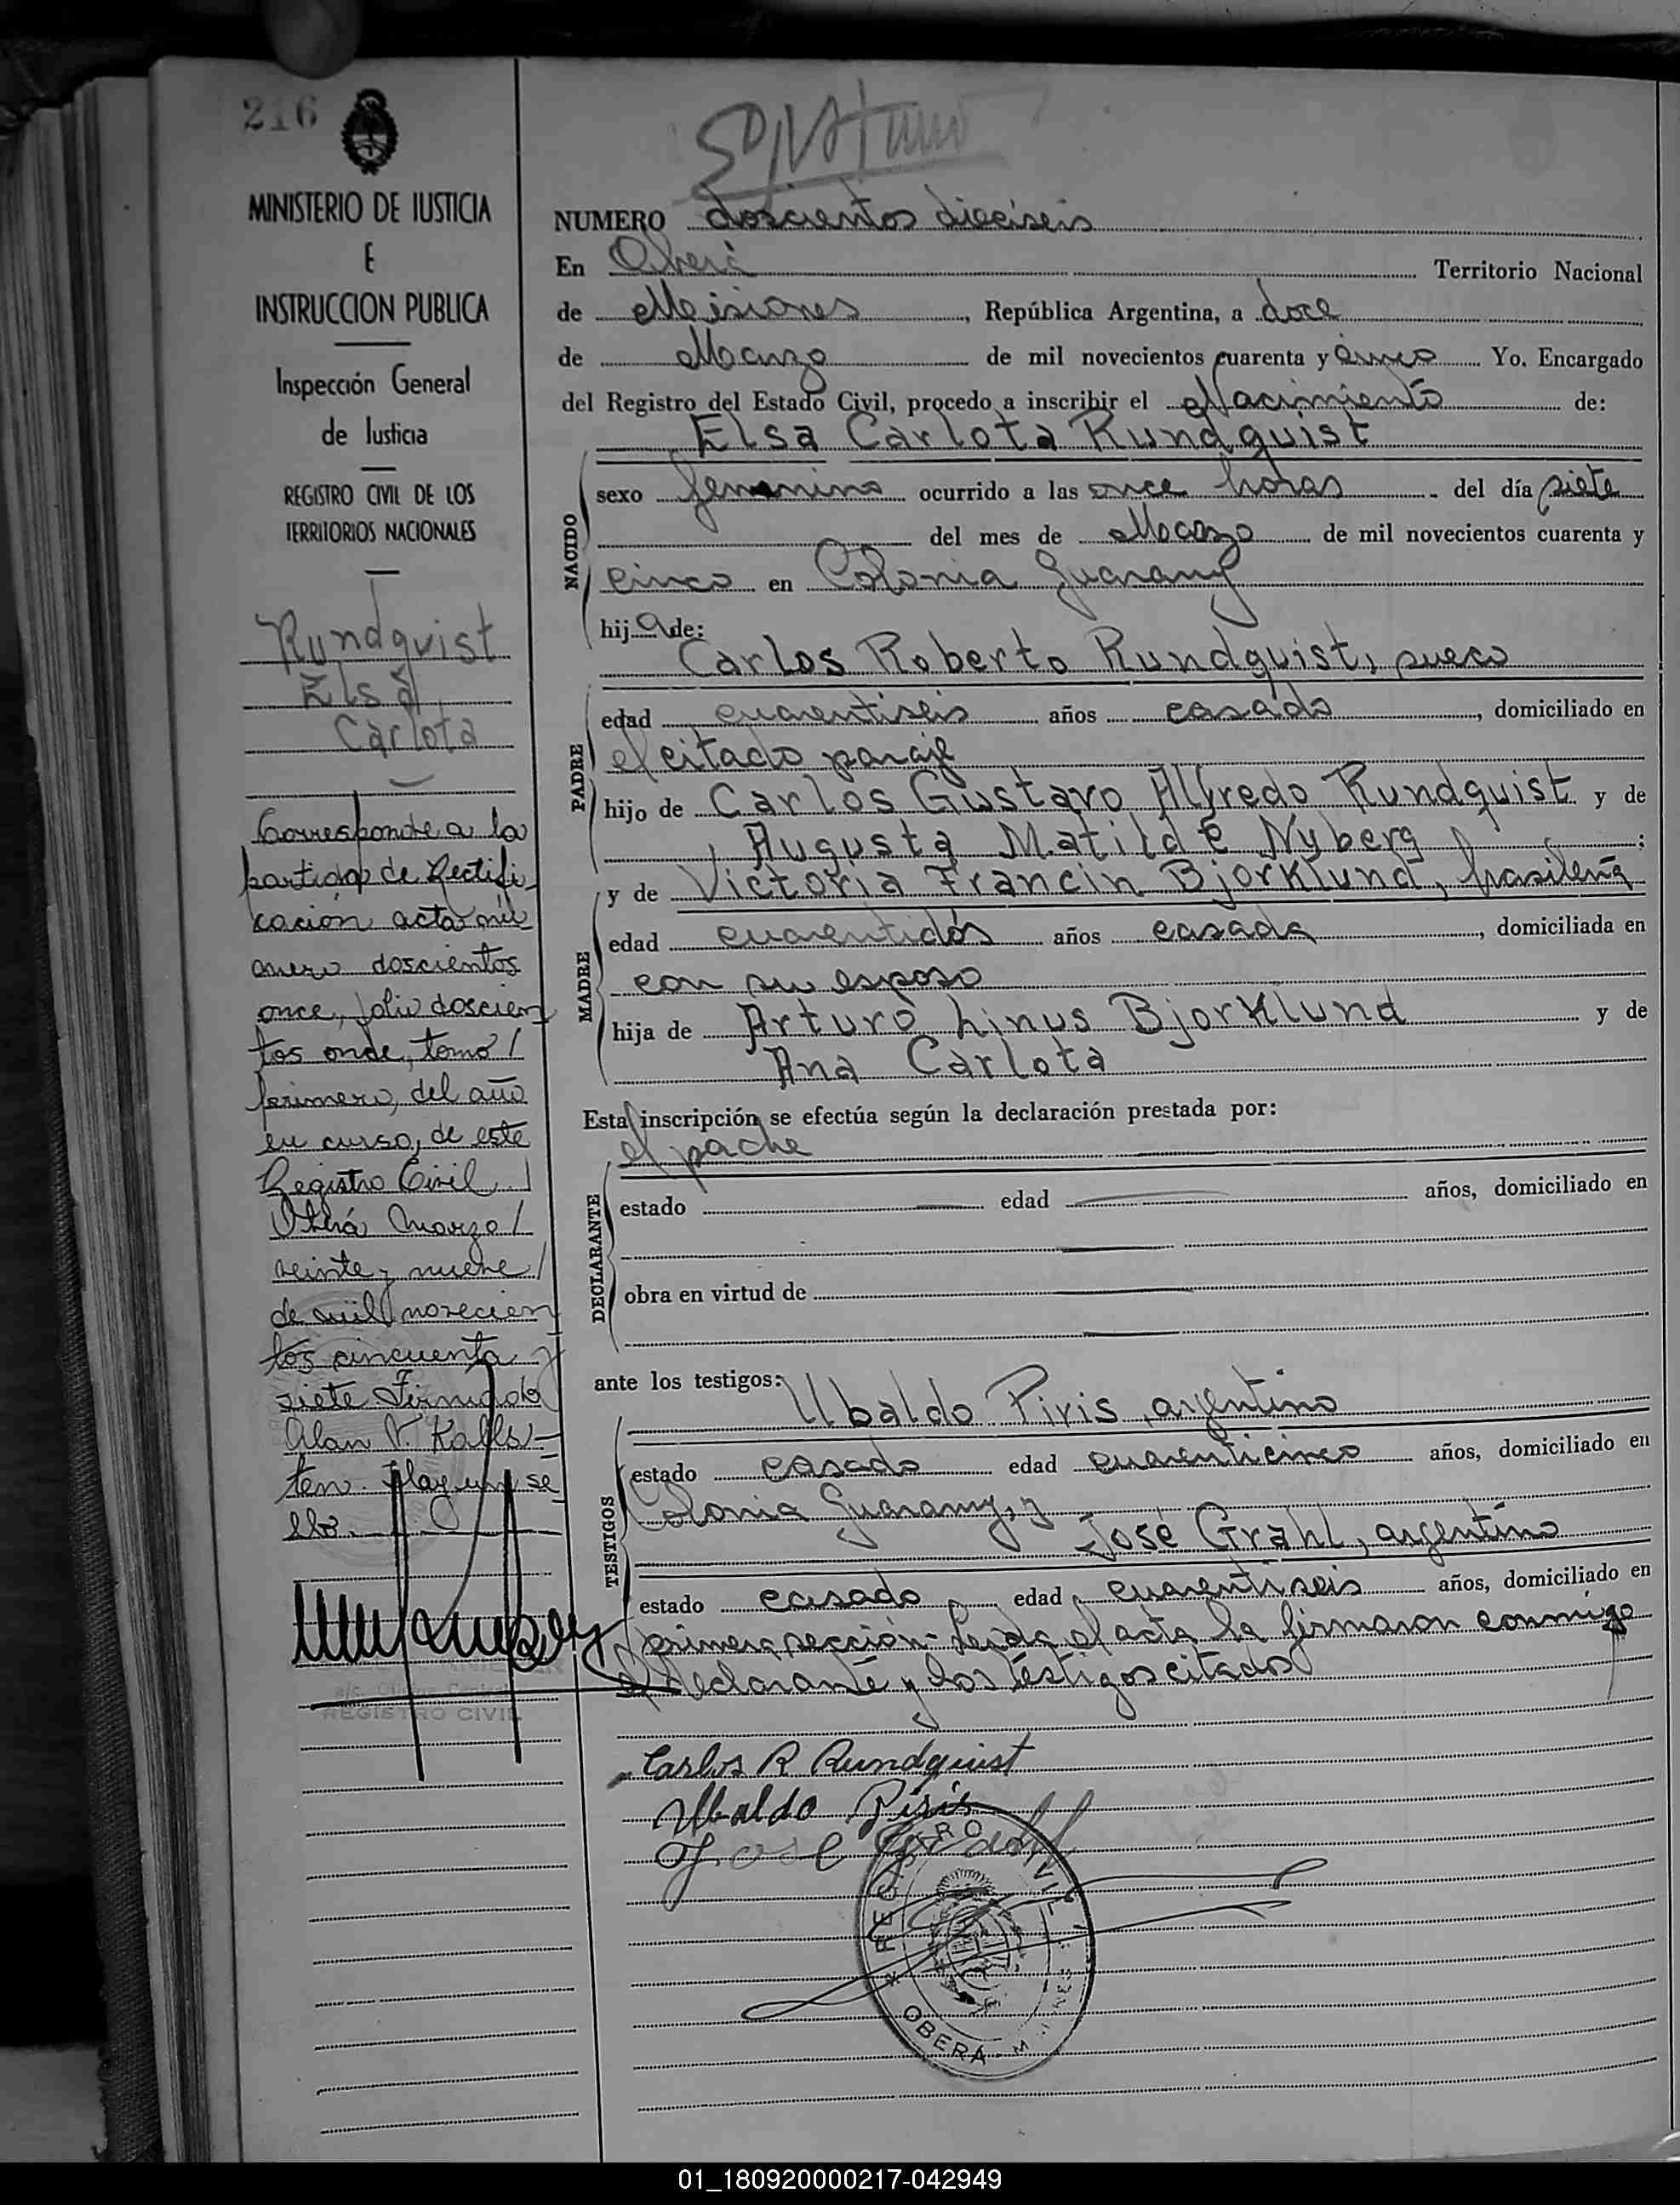 216
MINISTERIO DE JUSTICIA
E
INSTRUCCION PUBLICA
Inspección General
de Justicia
REGISTRO CIVIL DE LOS
TERRITORIOS NACIONALES
Rundquist
Elsa
Carlota
Corresponde a la
partida de Rectifi-
cación acta nú
mero doscientos
once, folio doscien
tos onde, tomo /
primero, del año
en curso, de este
Registro Civil
Oberá Marzo /
veinte y nueve /
de mil novecien
tos cincuenta y
siete Firmado
Alan V. Kalls-
ten. Hay un se
llo.
REGISTRO CIVIL
NUMERO doscientos dieciseis
En Oberá Territorio Nacional
de Misiones, República Argentina, a doce
de Marzo de mil novecientos cuarenta y cinco Yo. Encargado
del Registro del Estado Civil, procedo a inscribir el Nacimiento de:
Elsa Carlota Rundquist
NACIDO
sexo femenino ocurrido a las once horas del día siete
del mes de Marzo de mil novecientos cuarenta y
cinco en Colonia Guarany
hija de:
Carlos Roberto Rundquist, sueco
PADRE
edad cuarentiseis años casado, domiciliado en
el citado paraje
hijo de Carlos Gustavo Alfredo Rundquist y de
Augusta Matilde Nyberg;
y de Victoria Francin Bjorklund, brasileña
MADRE
edad cuarentidós años casada, domiciliada en
con su esposo
hija de Arturo Linus Bjorklund y de
Ana Carlota
Esta inscripción se efectúa según la declaración prestada por:
el padre
DECLARANTE
estado edad años, domiciliado en
obra en virtud de
ante los testigos: Ubaldo Piris, argentino
TESTIGOS
estado casado edad cuarenticinco años, domiciliado en
Colonia Guarany, y
José Grahl, argentino
estado casado, edad cuarentiseis años, domiciliado en
primera sección- Leida el acta la firmaron conmigo
el declarante y los testigos citados
Carlos R Rundquist
Ubaldo Piris
José Grahl
REGISTRO CIVIL
OBERÁ
01_180920000217-042949